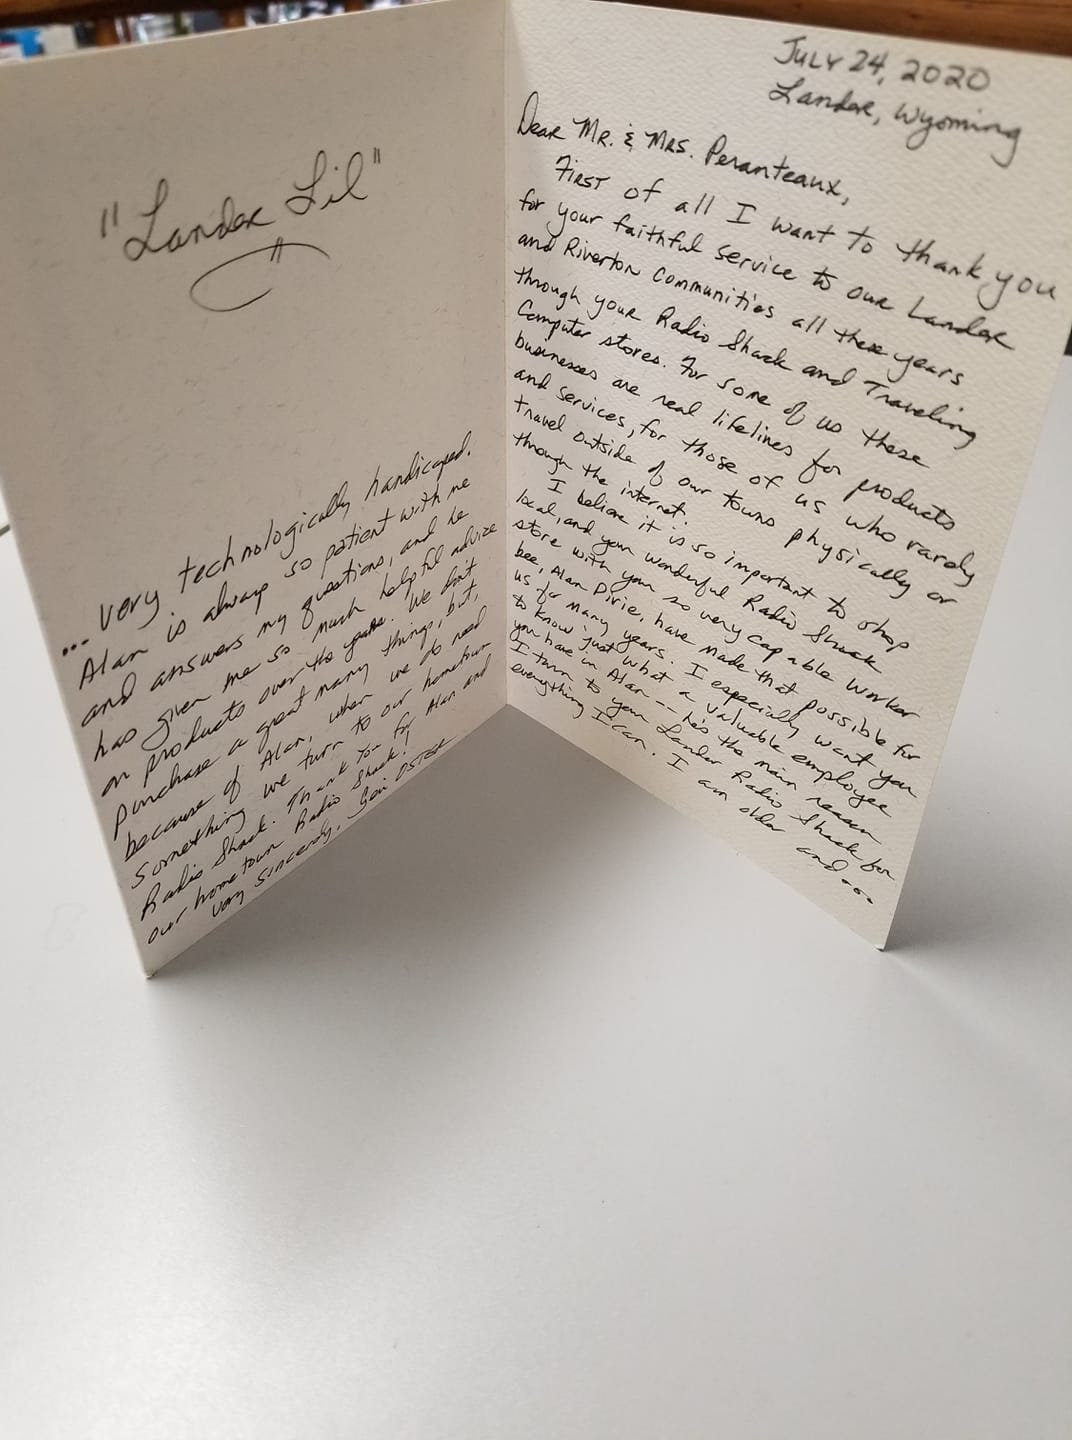 July 24, 2020
Lander, Wyoming
Dear Mr. & Mrs. Peranteaux,
First of all I want to thank you
for your faithful service to our Lander
and Riverton Communities all these years
through your Radio Shack and Traveling
Computer stores. For some of us these
businesses are real lifelines for products
and services, for those of us who rarely
travel outside of our towns physically or
through the internet.
I believe it is so important to shop
local, and your wonderful Radio Shack
store with your so very capable worker
bee, Alan Pirie, have made that possible for
us for many years. I especially want you
to know just what a valuable employee
you have in Alan -- he's the main reason
I turn to your Lander Radio Shack for
everything I can. I am older and...
"Lander Lil"
... very technologically handicaped.
Alan is always so patient with me
and answers my questions, and he
has given me so much helpful advice
on products over the years. We don't
purchase a great many things, but,
because of Alan, when we do need
something we turn to our hometown
Radio Shack. Thank You for Alan and
our hometown Radio Shack!
Very sincerely, Geri Oster